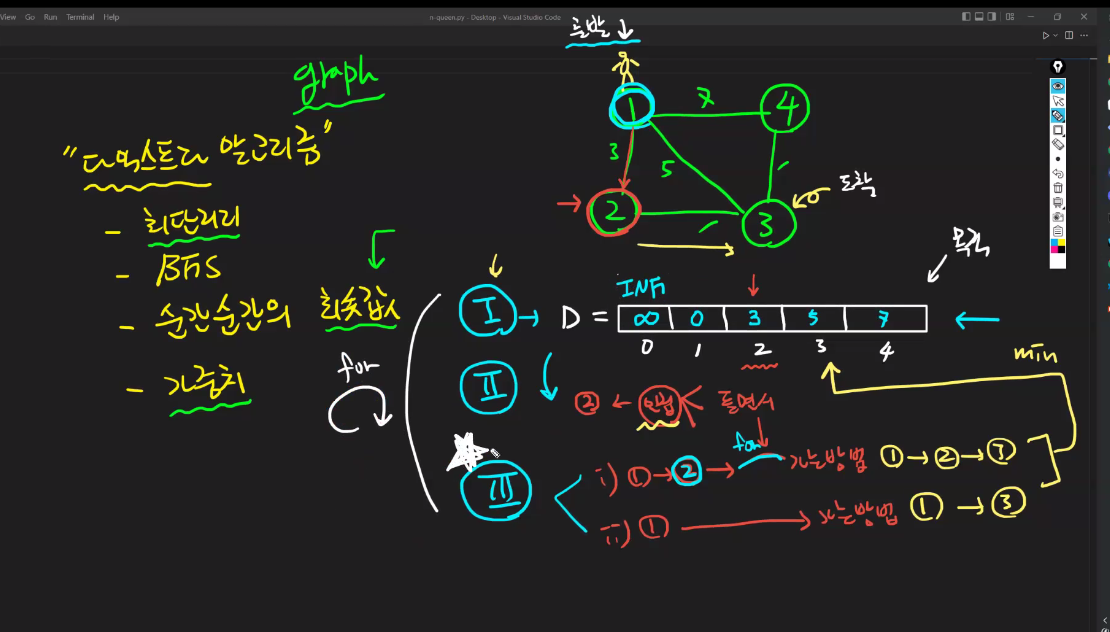 View Go Run Terminal Help
n-queen.py - Desktop - Visual Studio Code
출발 ↓
graph
"다익스트라 알고리즘"
- 최단거리
- BFS
- 순간순간의 최솟값
- 가중치
for
1 7 4
3 5 1
2 1 3
도착
목적
I → D =
INF
∞ 0 3 5 7
0 1 2 3 4
min
II
② ← 인접 돌면서
for
III
i) ① → ② → 가는방법 ① → ② → ③
ii) ① → 가는방법 ① → ③